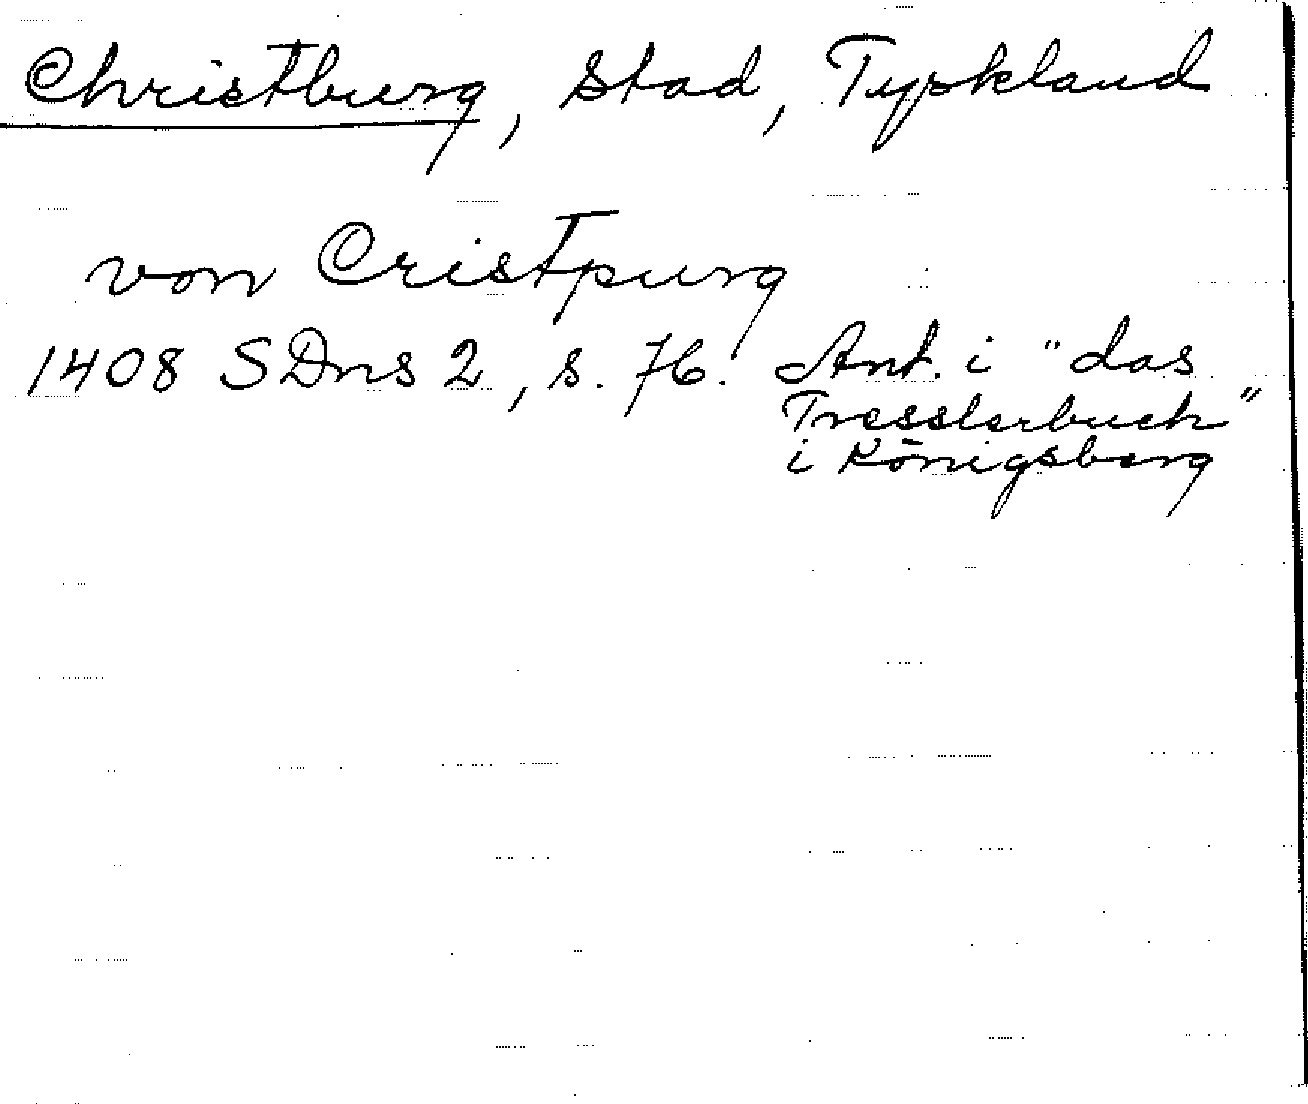 Christburg, stad, Tyskland
von Cristpurg
1408 SDns 2, s. 76. Ant. i "das
Tresslerbuch"
i Königsberg